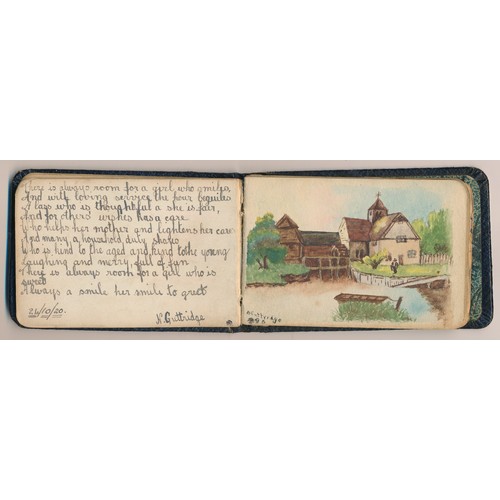 There is always room for a girl who smiles,
And with loving service the hour beguiles
A lass who is thoughtful a she is fair,
And for others wishes has a care
Who helps her mother and lightens her cares
And many a household duty shares
Who is kind to the aged and kind to the young
Laughing and merry, full of fun
There is always room for a girl who is
sweet
Always a smile her smile to greet
24/10/20.
N. Guttridge
Guttridge